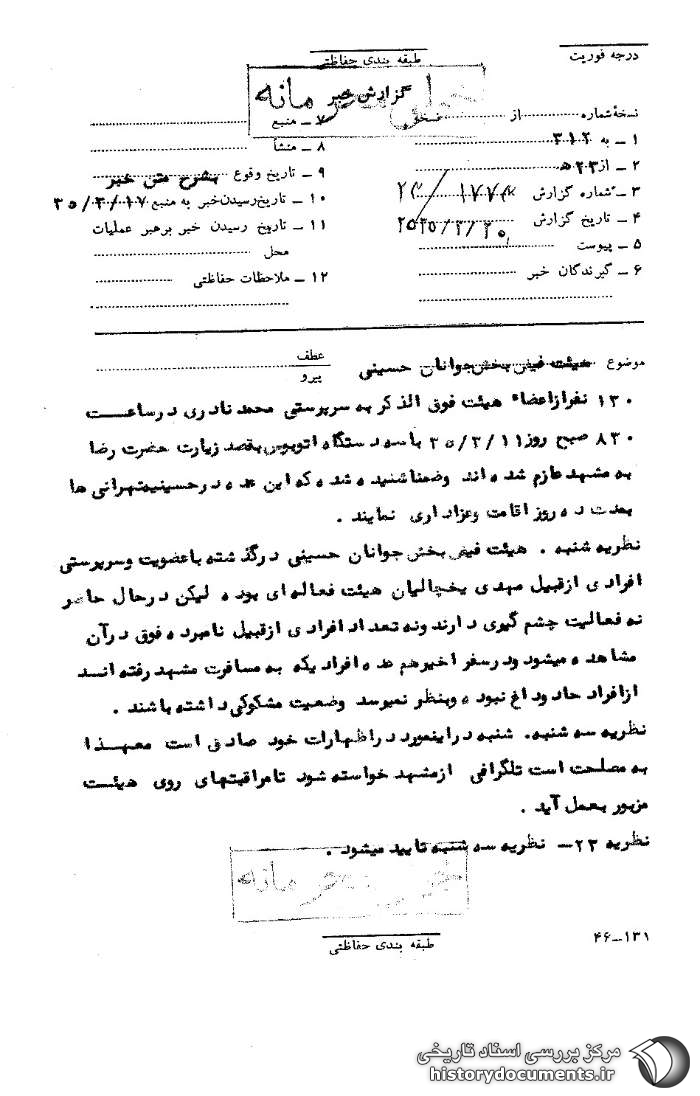 درجه فوریت
طبقه بندی حفاظتی
خیلی محرمانه
گزارش خبر
نسخهٔ شماره از نسخه
۱ ـ به ۳۱۲
۲ ـ از ۲۳ ه
۳ ـ شماره گزارش
۴ ـ تاریخ گزارش ۲۵۳۵/۳/۲۰
۵ ـ پیوست
۶ ـ گیرندگان خبر
۷ ـ منبع
۸ ـ منشأ
۹ ـ تاریخ وقوع بشرح متن خبر
۱۰ ـ تاریخ رسیدن خبر به منبع ۳۵/۳/۱۷
۱۱ ـ تاریخ رسیدن خبر برهبر عملیات
محل
۱۲ ـ ملاحظات حفاظتی
موضوع هیئت فیض بخش جوانان حسینی
عطف
پیرو
۱۳۰ نفر از اعضاء هیئت فوق الذکر به سرپرستی محمد نادری در ساعت
۸۳۰ صبح روز ۳۵/۳/۱۱ با سه دستگاه اتوبوس بقصد زیارت حضرت رضا
به مشهد عازم شده اند وضمنا شنیده شده که این عده در حسینیه تهرانی ها
بمدت ده روز اقامت وعزاداری نمایند .
نظریه شنبه . هیئت فیض بخش جوانان حسینی در گذشته با عضویت وسرپرستی
افرادی از قبیل مهدی یخچالیان هیئت فعاله ای بوده لیکن در حال حاضر
نه فعالیت چشم گیری دارند ونه تعداد افرادی از قبیل نامبرده فوق در آن
مشاهده میشود ودر سفر اخیر هم عده افرادیکه به مسافرت مشهد رفته اند
از افراد حاد وداغ نبوده وبنظر نمیرسد وضعیت مشکوکی داشته باشند .
نظریه سه شنبه. شنبه در اینمورد در اظهارات خود صادق است معهذا
به مصلحت است تلگرافی از مشهد خواسته شود تا مراقبتهای روی هیئت
مزبور بعمل آید .
نظریه ۲۳ـ نظریه سه شنبه تایید میشود .
خیلی محرمانه
طبقه بندی حفاظتی
۴۶ـ۱۳۱
مرکز بررسی اسناد تاریخی
historydocuments.ir